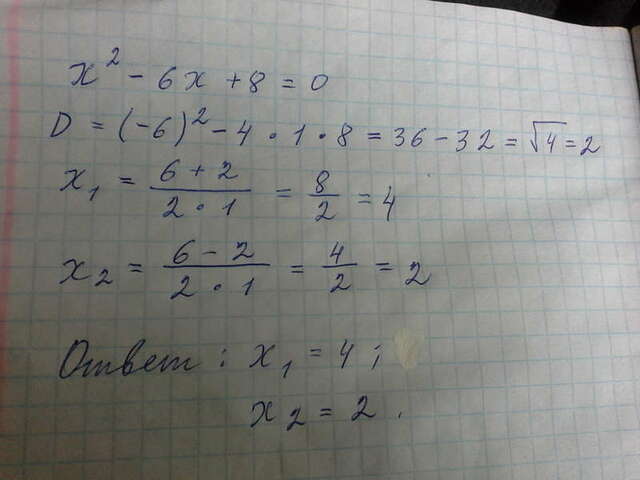 x² - 6x + 8 = 0
D = (-6)² - 4 · 1 · 8 = 36 - 32 = √4 = 2
x₁ = (6 + 2)/(2 · 1) = 8/2 = 4
x₂ = (6 - 2)/(2 · 1) = 4/2 = 2
Ответ: x₁ = 4;
x₂ = 2.